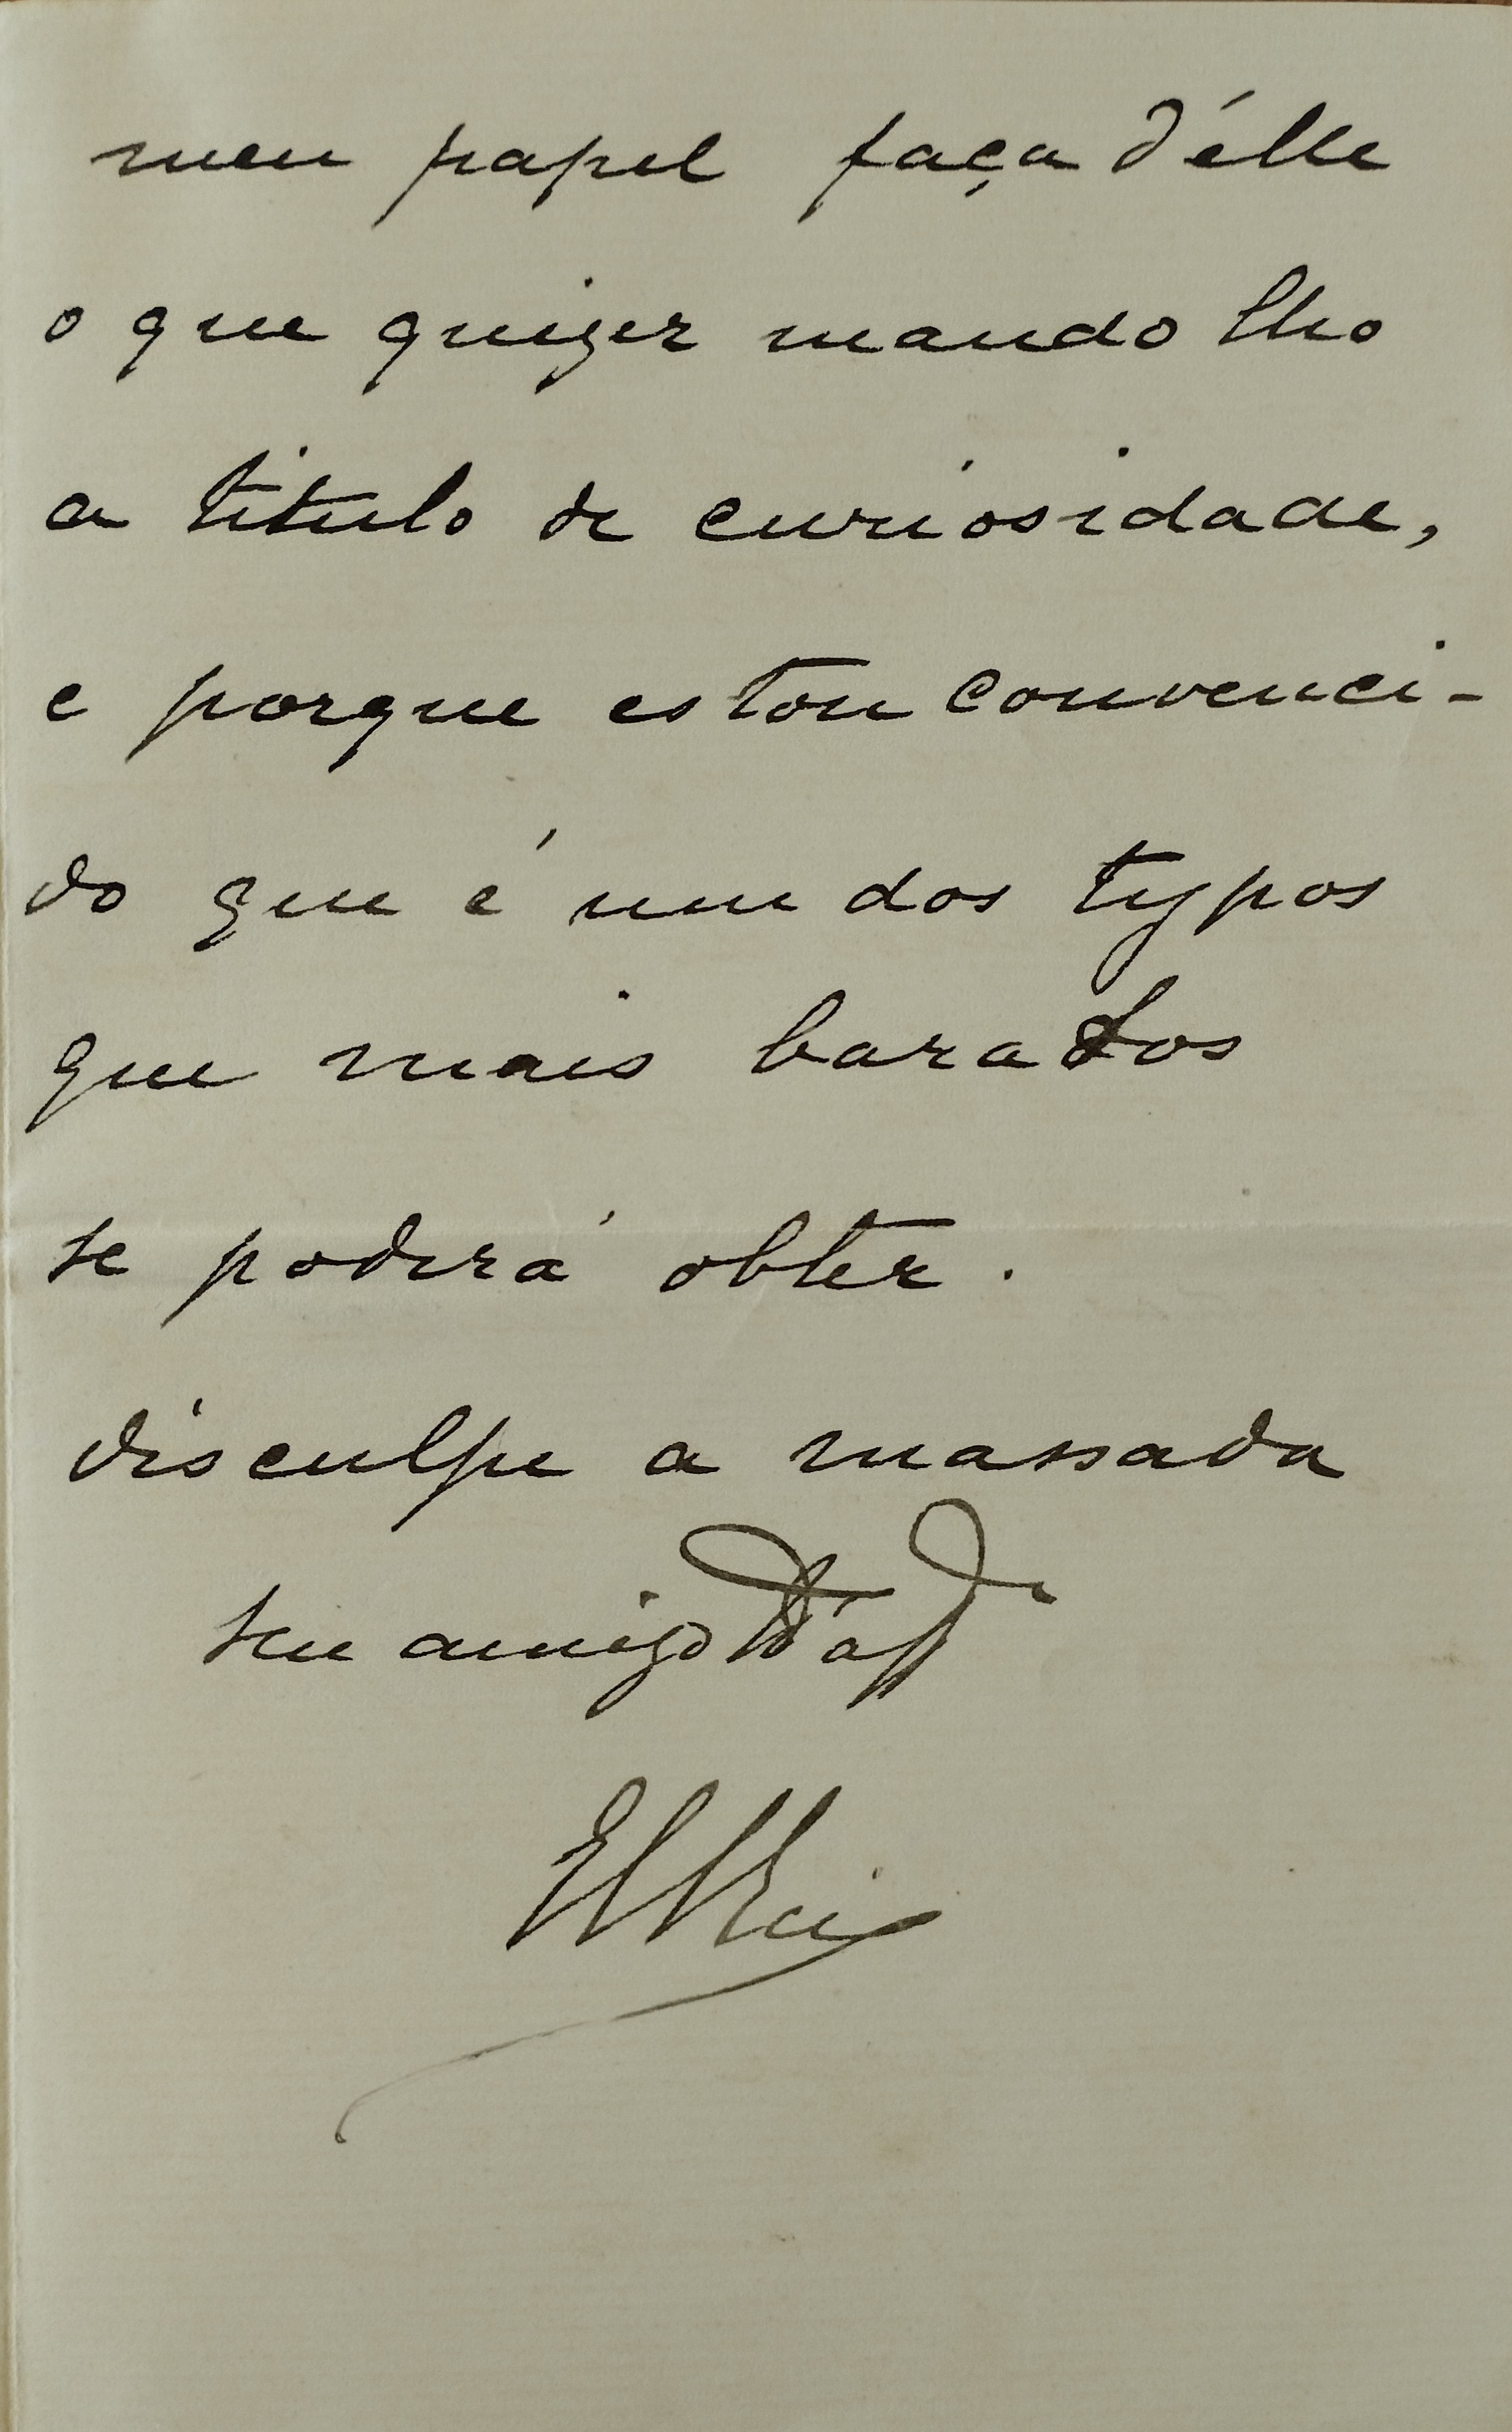 meu papel faça d'élle
o que quizer mando lho
a titulo de curiosidade,
e porque estou convenci-
do que é um dos typos
que mais baratos
se poderá obter.
disculpe a massada
seu amigo
El Rei